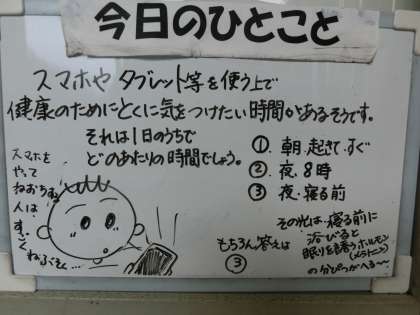 今日のひとこと
スマホや タブレット等を使う上で
健康のためにとくに気をつけたい時間があるそうです。
それは1日のうちで
どのあたりの時間でしょう。
① 朝.起きてすぐ
② 夜.8時
③ 夜.寝る前
スマホを
やって
ねおちする
人は
すごく
ねぶそく…
もちろん答えは
③
その光は.寝る前に
浴びると
眠りを誘うホルモン
(メラトニン)
の分ぴつがへる〜